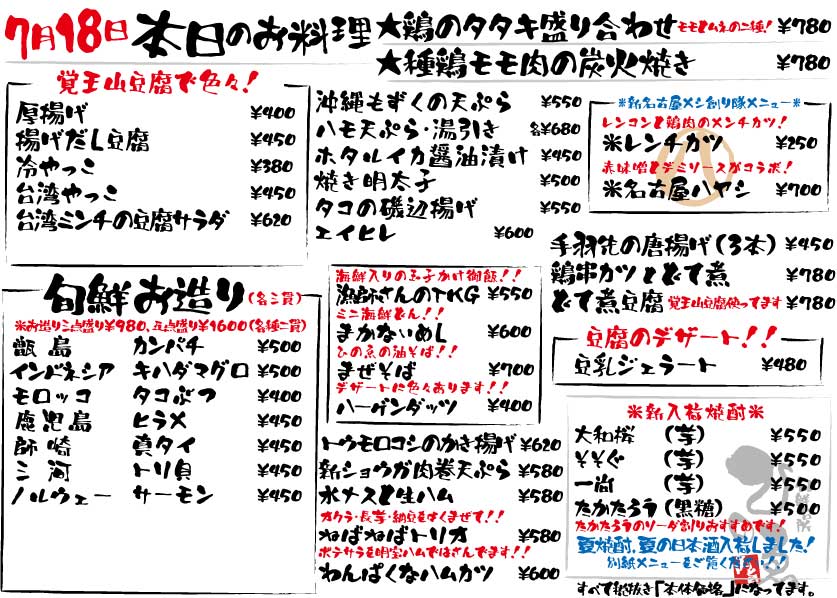 7月18日 本日のお料理
★鶏のタタキ盛り合わせ モモとムネの二種! ¥780
★種鶏モモ肉の炭火焼き ¥780
覚王山豆腐で色々!
厚揚げ ¥400
揚げだし豆腐 ¥450
冷やっこ ¥380
台湾やっこ ¥450
台湾ミンチの豆腐サラダ ¥620
旬鮮お造り(名三貫)
※お造り三点盛り¥980、五点盛り¥1600(各種二貫)
甑島 カンパチ ¥500
インドネシア キハダマグロ ¥500
モロッコ タコぶつ ¥400
鹿児島 ヒラメ ¥450
師崎 真タイ ¥450
三河 トリ貝 ¥450
ノルウェー サーモン ¥450
沖縄もずくの天ぷら ¥550
ハモ天ぷら・湯引き 各¥680
ホタルイカ醤油漬け ¥450
焼き明太子 ¥500
タコの磯辺揚げ ¥550
エイヒレ ¥600
海鮮入りの玉子かけ御飯!!
漁師さんのTKG ¥550
ミニ海鮮どん!!
まかないめし ¥600
ひのゑの油そば!!
まぜそば ¥700
デザートに色々あります!!
ハーゲンダッツ ¥400
トウモロコシのかき揚げ ¥620
新ショウガ肉巻天ぷら ¥580
水ナスと生ハム ¥580
オクラ・長芋・納豆をよくまぜて!!
ねばねばトリオ ¥580
ポテサラを明宝ハムではさんでます!!
わんぱくなハムカツ ¥600
※新名古屋メシ創り隊メニュー※
レンコンと鶏肉のメンチカツ!
※レンチカツ ¥250
赤味噌とデミソースがコラボ!
※名古屋ハヤシ ¥700
手羽先の唐揚げ(3本) ¥450
鶏串カツとどて煮 ¥780
どて煮豆腐 覚王山豆腐使ってます ¥780
豆腐のデザート!!
豆乳ジェラート ¥480
※新入荷焼酎※
大和桜 (芋) ¥550
そそぐ (芋) ¥550
一尚 (芋) ¥550
たかたろう (黒糖) ¥550
たかたろうのソーダ割りおすすめです!
夏焼酎、夏の日本酒入荷しました!
別紙メニューをご覧ください!!
すべて税抜き「本体価格」になってます。